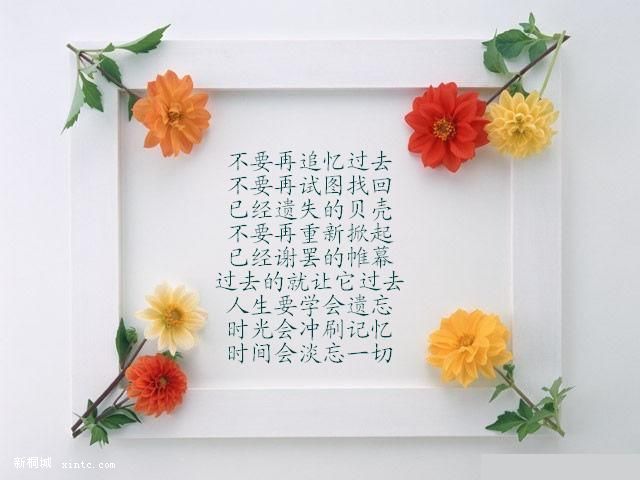 不要再追忆过去
不要再试图找回
已经遗失的贝壳
不要再重新掀起
已经谢罢的帷幕
过去的就让它过去
人生要学会遗忘
时光会冲刷记忆
时间会淡忘一切
新桐城 xintc.com